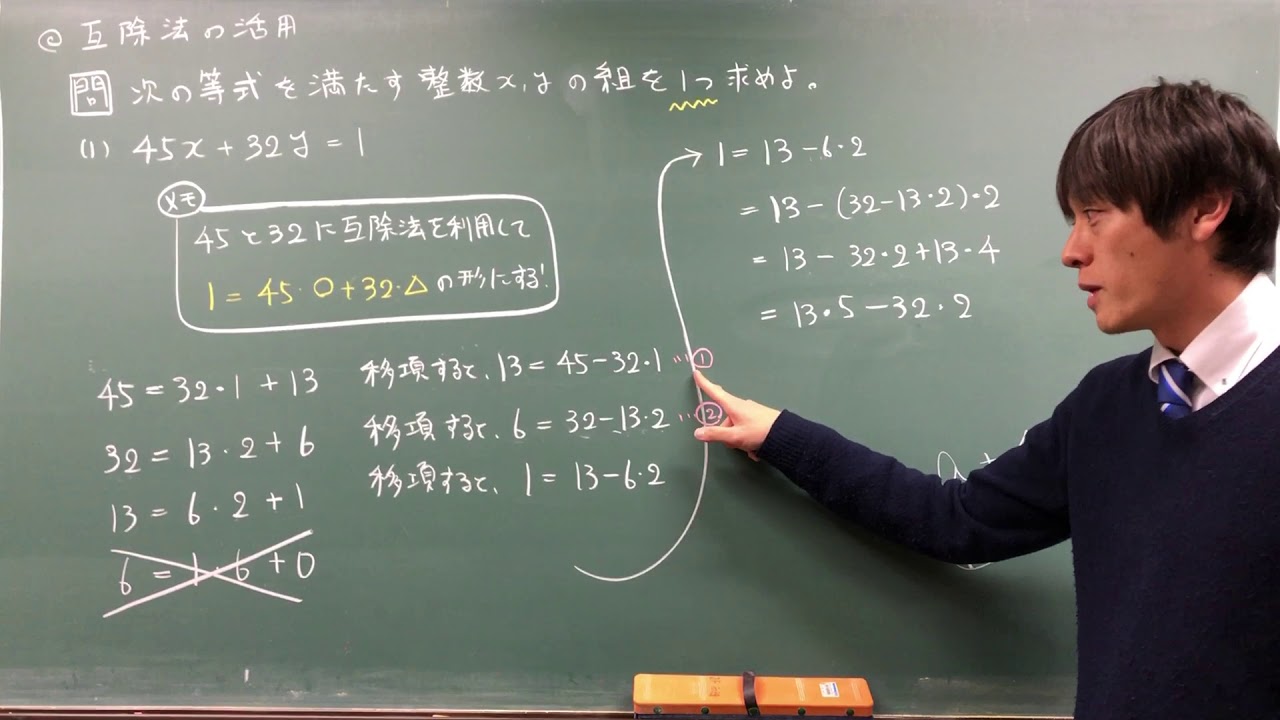 ◎ 互除法の活用
問 次の等式を満たす整数x,yの組を1つ求めよ。
(1) 45x+32y=1
メモ
45と32に互除法を利用して
1=45・○+32・△の形にする!
45=32・1+13 移項すると、13=45-32・1 …①
32=13・2+6 移項すると、6=32-13・2 …②
13=6・2+1 移項すると、1=13-6・2
6=1・6+0
1=13-6・2
=13-(32-13・2)・2
=13-32・2+13・4
=13・5-32・2